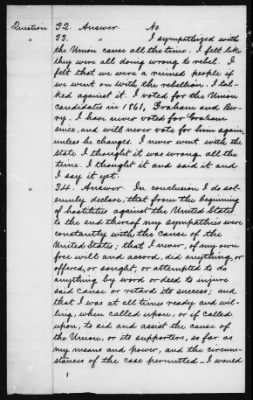 Question 32. Answer. No.
" 33. " I sympathized with
the Union cause all the time. I felt like
they were all doing wrong to rebel. I
felt that we were a ruined people if
we went on with the rebellion. I tal-
ked against it. I voted for the Union
candidates in 1861, Graham and Ber-
ry. I have never voted for Graham
since, and will never vote for him again,
unless he changes. I never went with the
State. I thought it was wrong all the
time. I thought it and said it and
I say it yet.
" 34. Answer. In conclusion I do sol-
emnly declare, that from the beginning
of hostilities against the United States
to the end thereof my sympathies were
constantly with the cause of the
United States; that I never, of my own
free will and accord, did anything, or
offered, or sought, or attempted to do
anything by word or deed to injure
said cause or retard its success; and
that I was at all times ready and wil-
ling, when called upon, or if called
upon, to aid and assist the cause of
the Union, or its supporters, so far as
my means and power, and the circum-
stances of the case permitted - I